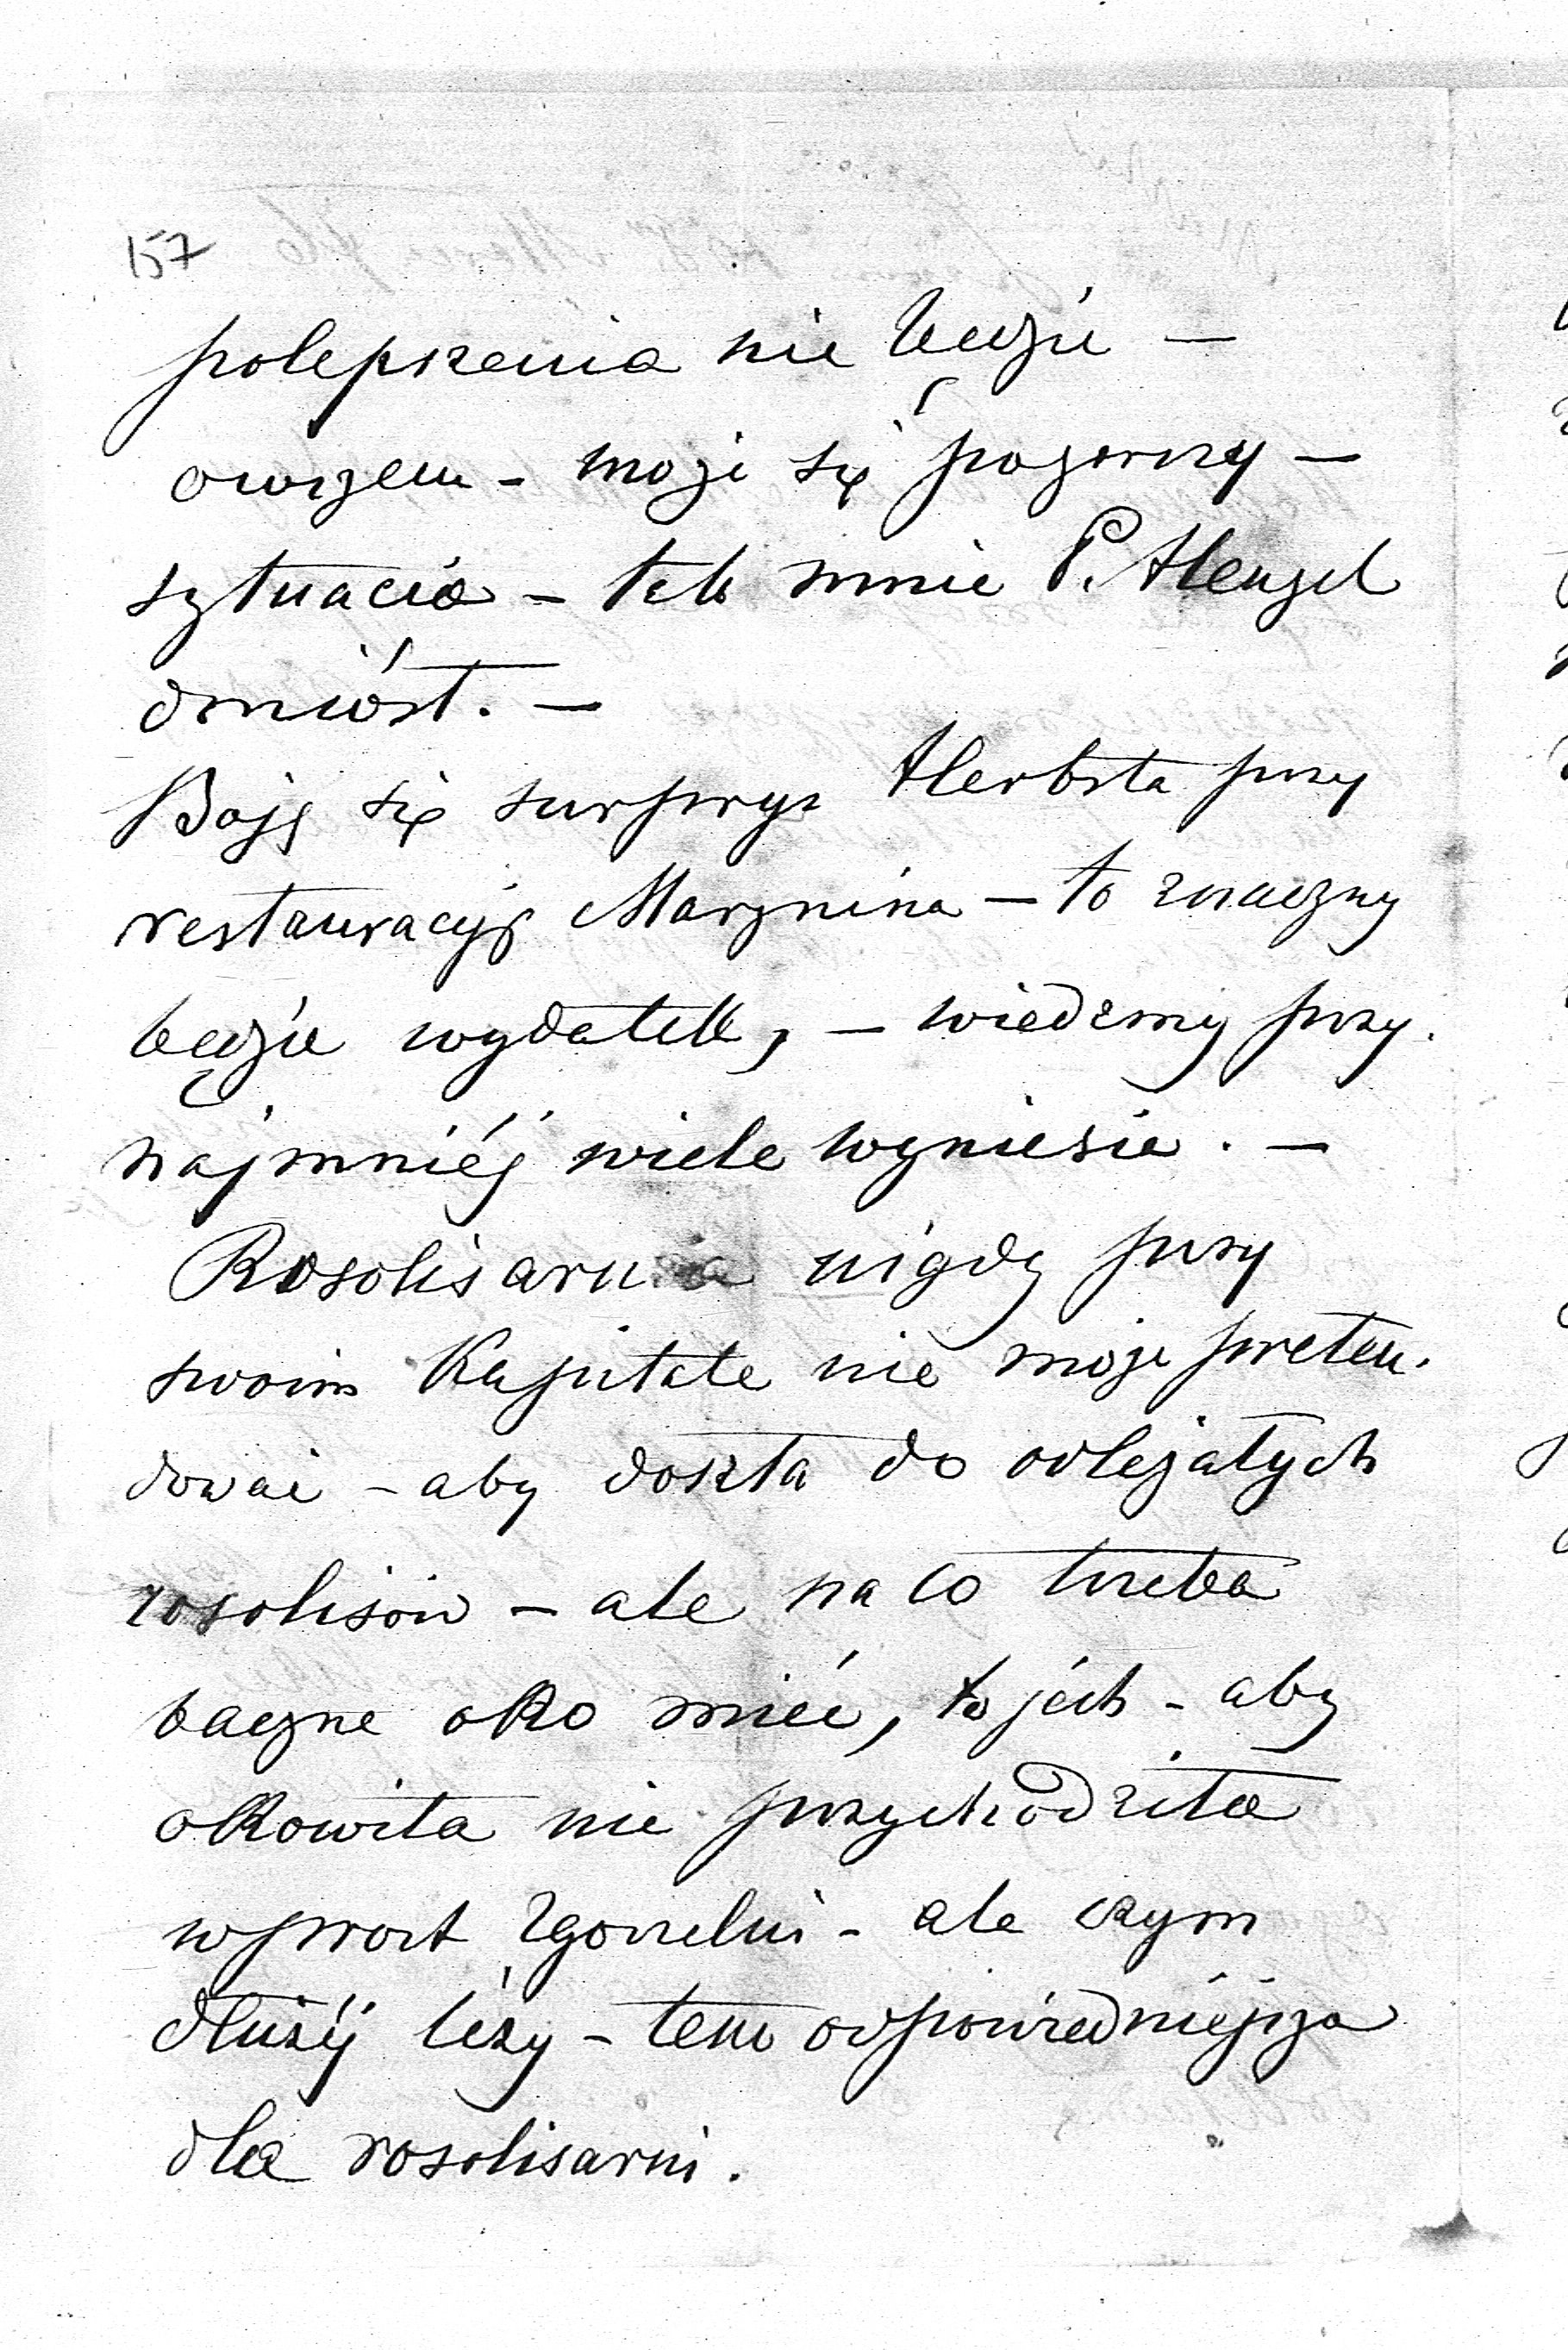 157
polepszenia nie będzie —
owszem - może się pogorszy —
sytuacia - tak mnie P. Henzel
doniósł. —
Boję się surpryz Herbsta przy
restauracyę Marynina — to znaczny
będzie wydatek, — wiedzmy przy.
najmniéj wiele wyniesie. —
Rosolisarnia nigdy przy
swoim Kapitale nie może preten.
dować - aby doszła do odleżałych
rosolisów - ale na co trzeba
baczne oko mieć, to jest - aby
okowita nie przychodziła
wprost zgorzelni - ale czym
dłużéj leży - tem odpowiedniejsza
dla rosolisarni.